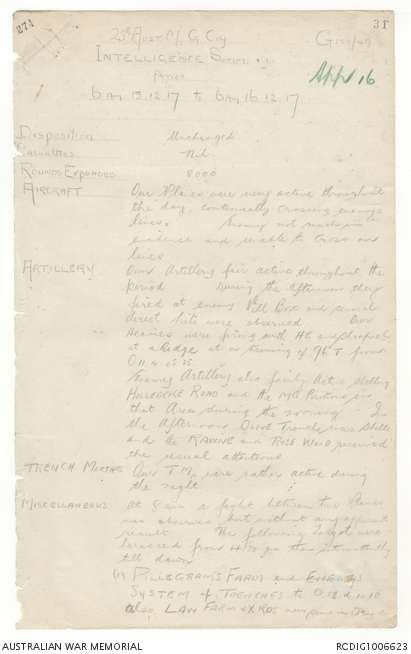 271
31
23rd Aust M. G. Coy
App 16
INTELLIGENCE
PERIOD
6am 15.12.17 to 6am 16.12.17
DISPOSITION Unchanged
CASUALTIES Nil
ROUNDS EXPENDED 8000
AIRCRAFT Our Planes were very active throughout
the day, continually crossing enemy
lines. Enemy not much in
evidence and unable to cross our
lines
ARTILLERY Our Artillery fair active throughout the
period During the afternoon they
fired at enemy Pill Box and several
direct hits were observed Our
Heavies were firing with HE and Shrapnel
at a Ridge at a bearing of 96° T from
Enemy Artillery also fairly active shelling
ROAD and the MG Positions in
that Area during the morning In
the afternoon Trench was shelled
and the RAVINE and ROSE WOOD received
the usual attention
TRENCH MORTARS Our T.Ms were rather active during
the night
MISCELLANEOUS At 8 am a fight between two Planes
was observed but without any apparent
result The following targets were
from 4.30 pm then intermittently
till dawn
(1) FARM and ENEMY'S
SYSTEM of TRENCHES to
also LAW FARM